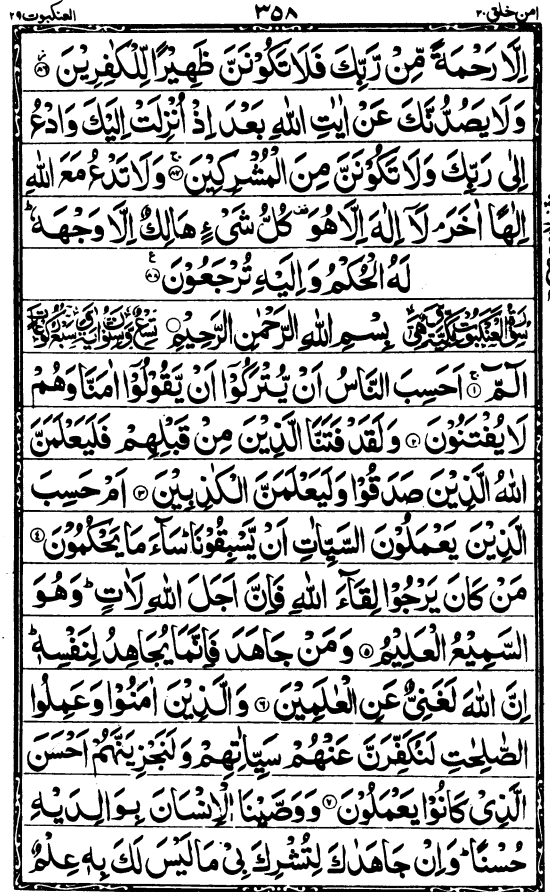 امن خلق ٢٠ ٣٥٨ العنكبوت ٢٩
اِلَّا رَحْمَةً مِّنْ رَّبِّكَ فَلَا تَكُوْنَنَّ ظَهِيْرًا لِّلْكٰفِرِيْنَ ﴿٨٦﴾
وَلَا يَصُدُّنَّكَ عَنْ اٰيٰتِ اللهِ بَعْدَ اِذْ اُنْزِلَتْ اِلَيْكَ وَادْعُ
اِلٰى رَبِّكَ وَلَا تَكُوْنَنَّ مِنَ الْمُشْرِكِيْنَ ﴿٨٧﴾ وَلَا تَدْعُ مَعَ اللهِ
اِلٰهًا اٰخَرَ ۘ لَآ اِلٰهَ اِلَّا هُوَ ۫ كُلُّ شَيْءٍ هَالِكٌ اِلَّا وَجْهَهٗ ؕ
لَهُ الْحُكْمُ وَاِلَيْهِ تُرْجَعُوْنَ ﴿٨٨﴾
سورة العنكبوت مكية وهى بِسْمِ اللهِ الرَّحْمٰنِ الرَّحِيْمِ تسع وستون اية وسبع ركوعات
الٓمّٓ ﴿١﴾ اَحَسِبَ النَّاسُ اَنْ يُّتْرَكُوْٓا اَنْ يَّقُوْلُوْٓا اٰمَنَّا وَهُمْ
لَا يُفْتَنُوْنَ ﴿٢﴾ وَلَقَدْ فَتَنَّا الَّذِيْنَ مِنْ قَبْلِهِمْ فَلَيَعْلَمَنَّ
اللهُ الَّذِيْنَ صَدَقُوْا وَلَيَعْلَمَنَّ الْكٰذِبِيْنَ ﴿٣﴾ اَمْ حَسِبَ
الَّذِيْنَ يَعْمَلُوْنَ السَّيِّاٰتِ اَنْ يَّسْبِقُوْنَا ؕ سَآءَ مَا يَحْكُمُوْنَ ﴿٤﴾
مَنْ كَانَ يَرْجُوْا لِقَآءَ اللهِ فَاِنَّ اَجَلَ اللهِ لَاٰتٍ ؕ وَهُوَ
السَّمِيْعُ الْعَلِيْمُ ﴿٥﴾ وَمَنْ جَاهَدَ فَاِنَّمَا يُجَاهِدُ لِنَفْسِهٖ ؕ
اِنَّ اللهَ لَغَنِيٌّ عَنِ الْعٰلَمِيْنَ ﴿٦﴾ وَالَّذِيْنَ اٰمَنُوْا وَعَمِلُوا
الصّٰلِحٰتِ لَنُكَفِّرَنَّ عَنْهُمْ سَيِّاٰتِهِمْ وَلَنَجْزِيَنَّهُمْ اَحْسَنَ
الَّذِيْ كَانُوْا يَعْمَلُوْنَ ﴿٧﴾ وَوَصَّيْنَا الْاِنْسَانَ بِوَالِدَيْهِ
حُسْنًا ؕ وَاِنْ جَاهَدٰكَ لِتُشْرِكَ بِيْ مَا لَيْسَ لَكَ بِهٖ عِلْمٌ